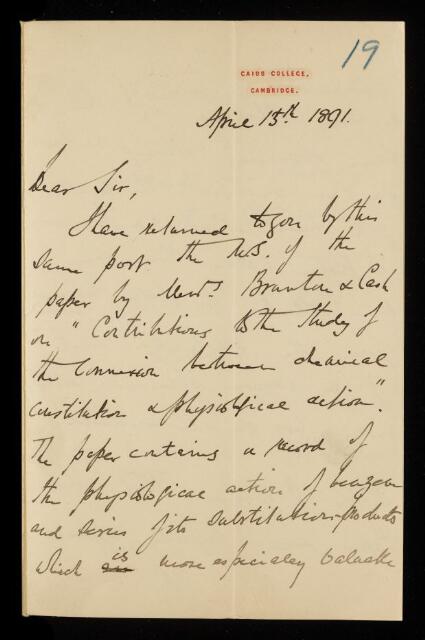 19
CAIUS COLLEGE,
CAMBRIDGE.
April 15th 1891.
Dear Sir,
I have returned to you by this
same post the M.S. of the
paper by Messrs Brunton & Cash
on "Contributions to the Study of
the Connexion between chemical
constitution & physiological action".
The paper contains a record of
the physiological action of benzene
and series of its substitution-products
which is more especially valuable